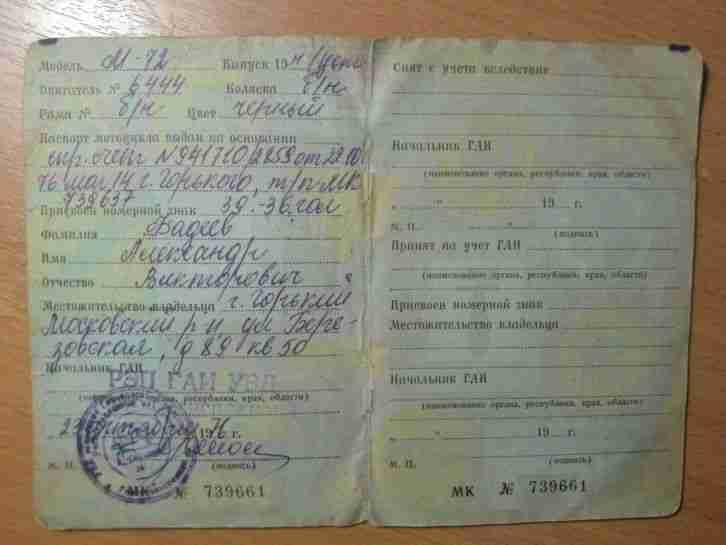 Модель М-72 Выпуск 19
Двигатель № 6444 Коляска б/н
Рама № б/н Цвет черный
Паспорт мотоцикла выдан на основании
N 941710/2259 от
76 маг. 14 г. Горького, т/п МК
739637
Присвоен номерной знак 39-36 гол
Фамилия Фадеев
Имя Александр
Отчество Викторович
Местожительство владельца г. Горький
Московский р-н ул Бере-
зовская, д 89 кв 50
Начальник ГАИ
РЭП ГАИ УВД
(наименование органа, республики, края, области)
1976 г.
М. П. (подпись)
МК № 739661
Снят с учета вследствие
Начальник ГАИ
(наименование органа, республики, края, области)
„ " 19 г.
М. П. (подпись)
Принят на учет ГАИ
(наименование органа, республики, края, области)
Присвоен номерной знак
Местожительство владельца
Начальник ГАИ
(наименование органа, республики, края, области)
„ " 19 г.
М. П. (подпись)
МК № 739661